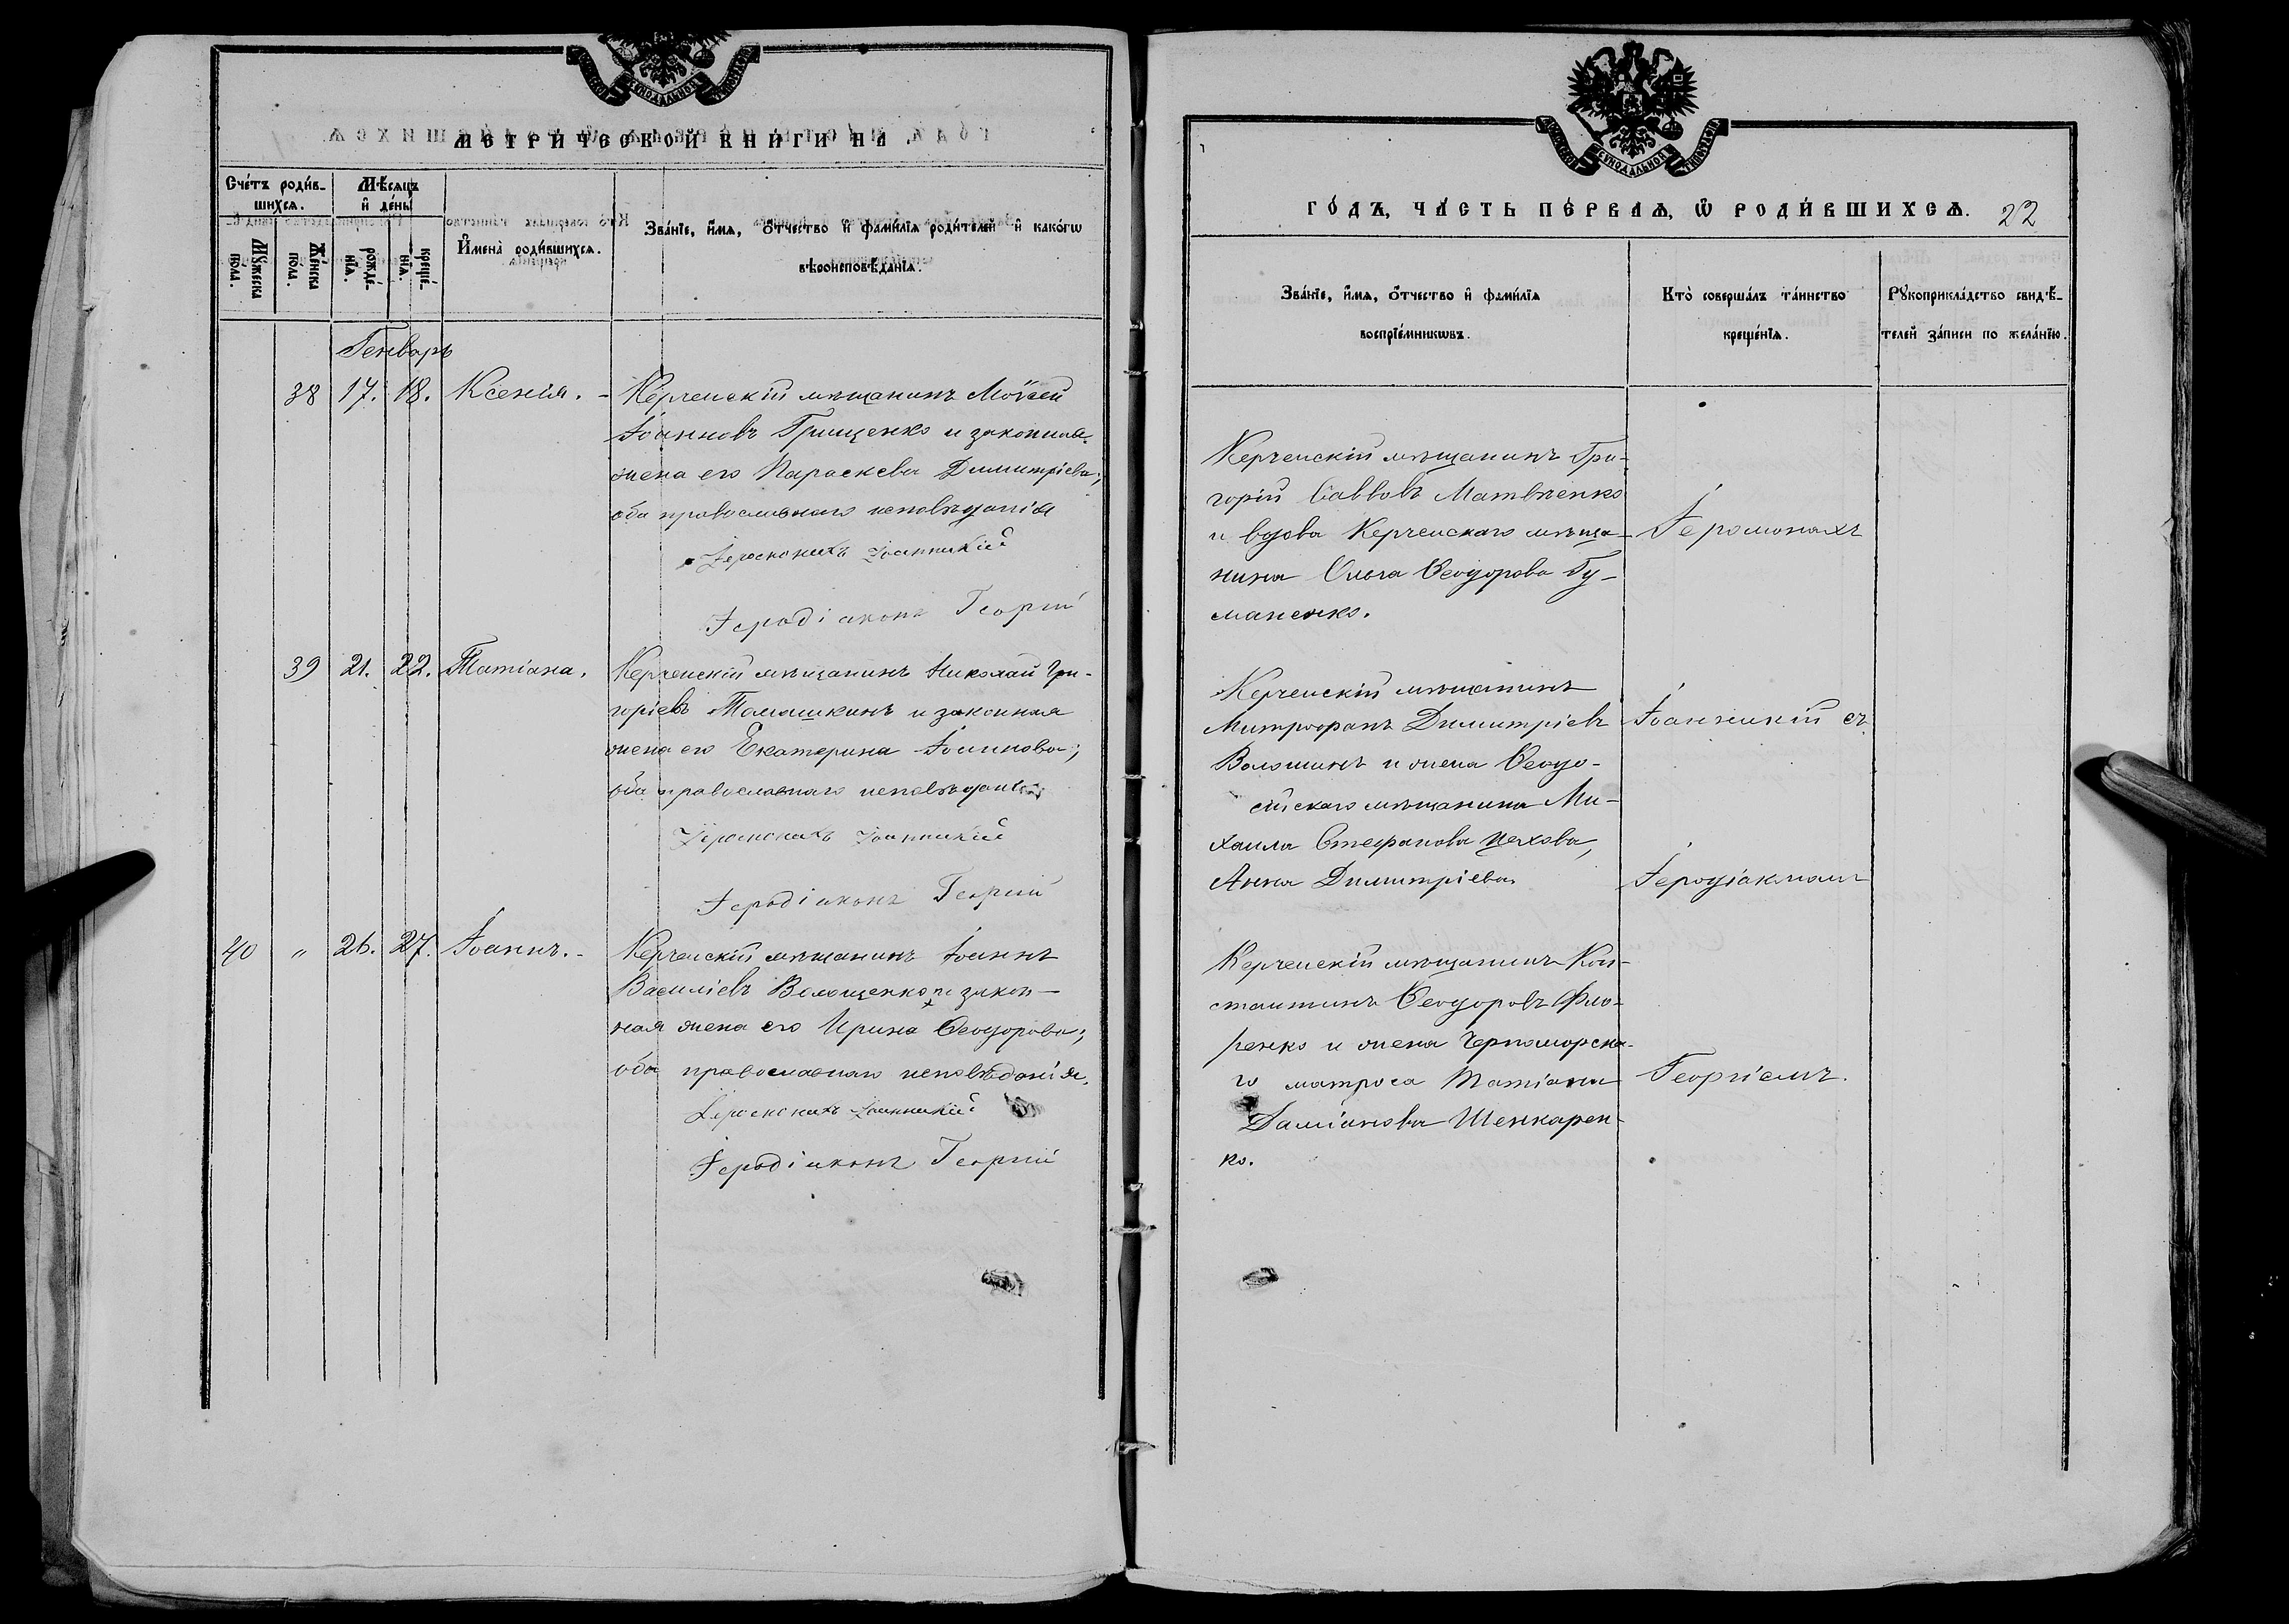 МЕТРИЧЕСКОЙ КНИГИ НА
Счетъ родив-
шихся.
Мѣсяцъ
и день
Мужеска пола.
Женска пола.
рожде-нія.
креще-нія.
Имена родившихся.
Званіе, имя, отчество и фамилія родителей и какогѡ
вѣроисповѣданія.
Генварь
38 17. 18. Ксенія. - Керченскій мѣщанинъ Моѵсей
Іоанновъ Грищенко и законная
жена его Параскева Димитріева;
оба православнаго исповѣданія
Іеромонахъ Іоанникій
Іеродіаконъ Георгій
39 21. 22. Татіана. Керченскій мѣщанинъ Николай Гри-
горіевъ Томашкинъ и законная
жена его Екатерина Іоаннова;
оба православнаго исповѣданія
Іеромонахъ Іоанникій
Іеродіаконъ Георгій
40 " 26. 27. Іоаннъ. - Керченскій мѣщанинъ Іоаннъ
Василіевъ Волощенко и закон-
ная жена его Ирина Ѳеодорова;
оба православнаго исповѣданія.
Іеромонахъ Іоанникій
Іеродіаконъ Георгій
ГОДЪ, ЧАСТЬ ПЕРВАЯ, Ѿ РОДИВШИХСЯ. 22
Званіе, имя, отчество и фамилія
воспріемниковъ.
Кто совершалъ таинство
крещенія.
Рукоприкладство свидѣ-
телей записи по желанію.
Керченскій мѣщанинъ Гри-
горій Савовъ Матвѣенко
и вдова Керченскаго мѣща-
нина Ольга Ѳеодорова Гу-
маненко.
Іеромонахъ
Керченскій мѣщанинъ
Митрофанъ Димитріевъ
Волошинъ и жена Ѳеодо-
сійскаго мѣщанина Ми-
хаила Стефанова
Анна Димитріева
Іоанникій съ
Іеродіакономъ
Керченскій мѣщанинъ Кон-
стантинъ Ѳеодоровъ Фло-
ренко и жена Черноморска-
го матроса Татіана
Даміанова Шенкарен-
ко.
Георгіемъ.